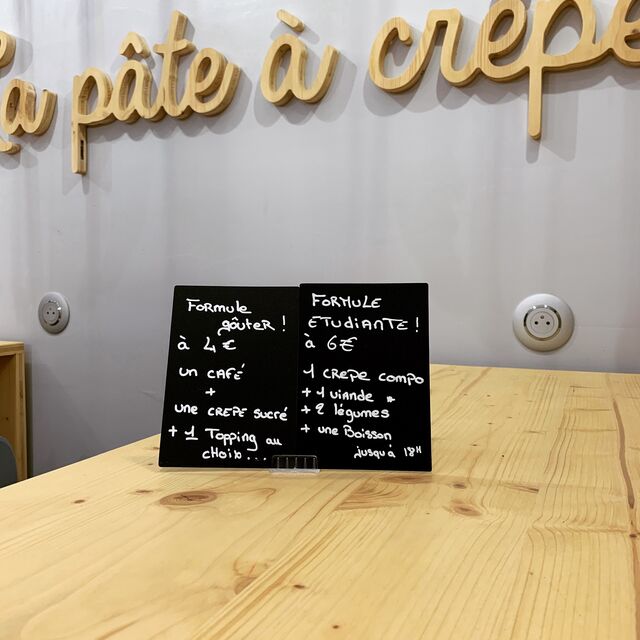 La pâte à crepe
Formule
goûter !
à 4€
un CAFÉ
+
une CREPE SUCRÉ
+ 1 Topping au
choix...
FORMULE
ETUDIANTE !
à 6€
1 CREPE COMPO
+ 1 viande *
+ 2 légumes
+ une Boisson
Jusqu'à 18H